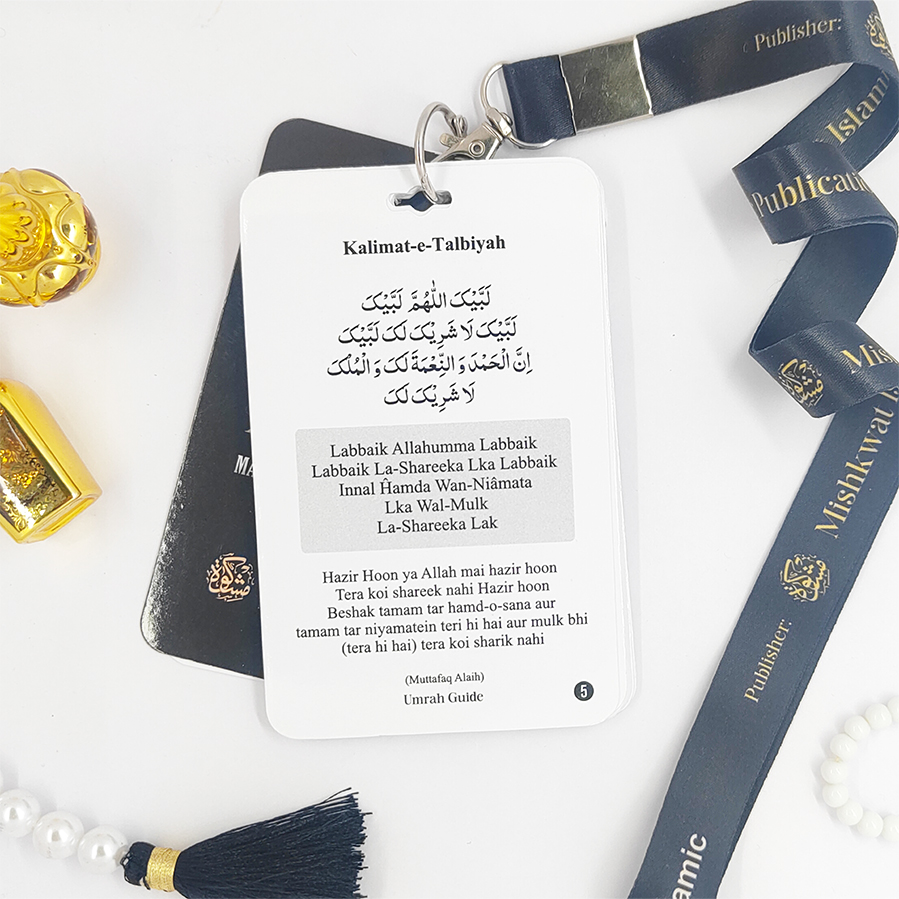 Kalimat-e-Talbiyah
لَبَّيْكَ اللّٰهُمَّ لَبَّيْكَ
لَبَّيْكَ لَا شَرِيْكَ لَكَ لَبَّيْكَ
اِنَّ الْحَمْدَ وَ النِّعْمَةَ لَكَ وَ الْمُلْكَ
لَا شَرِيْكَ لَكَ
Labbaik Allahumma Labbaik
Labbaik La-Shareeka Lka Labbaik
Innal Ĥamda Wan-Niâmata
Lka Wal-Mulk
La-Shareeka Lak
Hazir Hoon ya Allah mai hazir hoon
Tera koi shareek nahi Hazir hoon
Beshak tamam tar hamd-o-sana aur
tamam tar niyamatein teri hi hai aur mulk bhi
(tera hi hai) tera koi sharik nahi
(Muttafaq Alaih)
Umrah Guide
5
MA
مشكوة
Publisher:
Islamic
Publicati
Mishk
مشكوة
Mishkwat I
مشكوة
Publisher:
amic